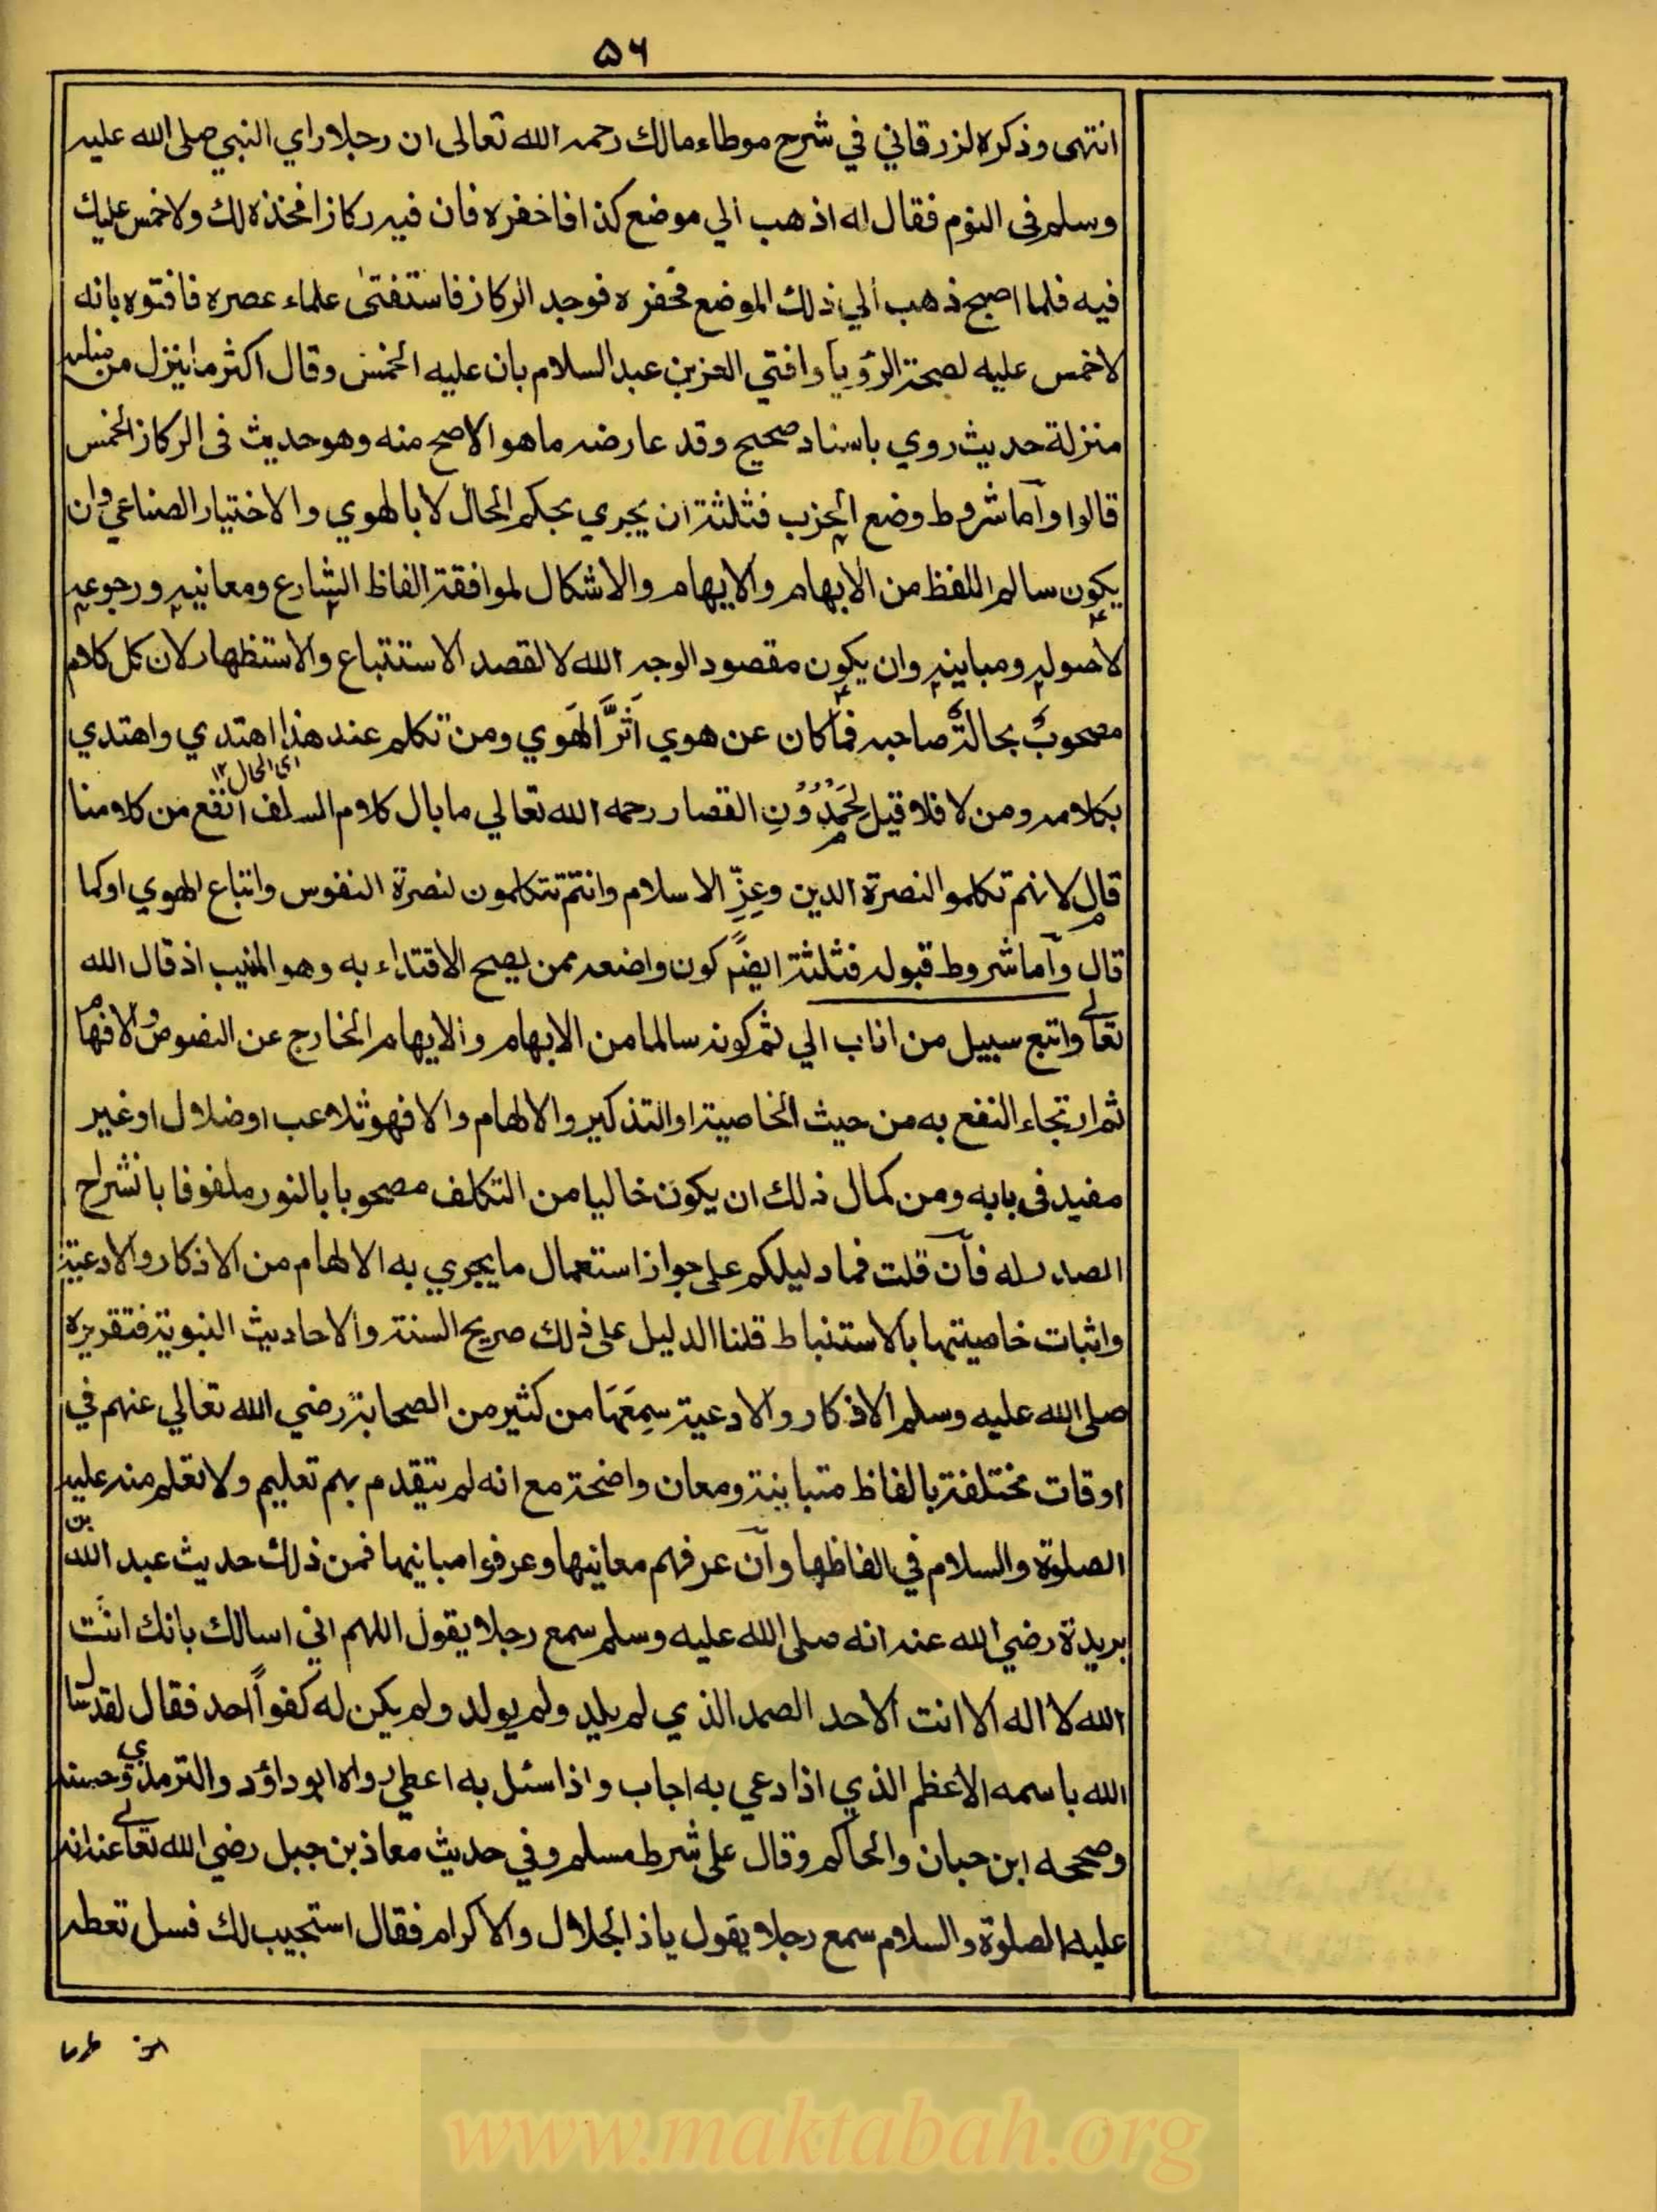 ۵۶
انتهى وذكره لزرقاني في شرح موطاء مالك رحمه الله تعالى ان رجلا راي النبي صلى الله عليه
وسلم فى النوم فقال له اذهب الي موضع كذا فاحفره فان فيه ركازا فخذه لك ولا خمس عليك
فيه فلما اصبح ذهب الي ذلك الموضع فحفره فوجد الركاز فاستفتى علماء عصره فافتوه بانه
لا خمس عليه لصحة الرؤيا وافتي العز بن عبد السلام بان عليه الخمس وقال اكثر ما ينزل من منامه
منزلة حديث روي باسناد صحيح وقد عارضه ما هو الاصح منه وهو حديث فى الركاز الخمس
قالوا واما شروط وضع الحزب فثلثة ان يجري بحكم الحال لا بالهوي والاختيار الصناعي وان
يكون سالم اللفظ من الابهام والايهام والاشكال لموافقة الفاظ الشارع ومعانيه ورجوعه
لاصوله ومباينه وان يكون مقصود الوجه الله لا لقصد الاستتباع والاستظهار لان كل كلام
مصحوب بحالة صاحبه فما كان عن هوي اثر الهوي ومن تكلم عند هذا اهتدي واهتدي
اى الحال ١٢
بكلامه ومن لا فلا قيل لحمدون القصار رحمه الله تعالي ما بال كلام السلف انفع من كلامنا
قال لانهم تكلموا لنصرة الدين وعز الاسلام وانتم تتكلمون لنصرة النفوس واتباع الهوي او كما
قال واما شروط قبوله فثلثة ايضا كون واضعه ممن يصح الاقتداء به وهو المنيب اذ قال الله
تعالے واتبع سبيل من اناب الي ثم كونه سالما من الابهام والايهام الخارج عن النصوص والافهام
ثم ارتجاء النفع به من حيث الخاصية او التذكير والالهام والا فهو تلاعب او ضلال او غير
مفيد فى بابه ومن كمال ذلك ان يكون خاليا من التكلف مصحوبا بالنور ملفوفا بانشراح
الصدر له فان قلت فما دليلكم على جواز استعمال ما يجري به الالهام من الاذكار والادعية
واثبات خاصيتها بالاستنباط قلنا الدليل على ذلك صريح السنة والاحاديث النبوية فتقريره
صلى الله عليه وسلم الاذكار والادعية سمعها من كثير من الصحابة رضي الله تعالي عنهم في
اوقات مختلفة بالفاظ متباينة ومعان واضحة مع انه لم يتقدم بهم تعليم ولا تعلم منه عليه
الصلوة والسلام في الفاظها وان عرفهم معانيها وعرفوا مبانيها فمن ذلك حديث عبد الله بن
بريدة رضي الله عنه انه صلى الله عليه وسلم سمع رجلا يقول اللهم اني اسالك بانك انت
الله لا اله الا انت الاحد الصمد الذي لم يلد ولم يولد ولم يكن له كفوا احد فقال لقد سال
الله باسمه الاعظم الذي اذا دعي به اجاب واذا سئل به اعطي رواه ابو داؤد والترمذي وحسنه
وصححه ابن حبان والحاكم وقال على شرط مسلم وفي حديث معاذ بن جبل رضي الله تعالے عنه انه
عليه الصلوة والسلام سمع رجلا يقول يا ذا الجلال والاكرام فقال استجيب لك فسل تعطه
www.maktabah.org